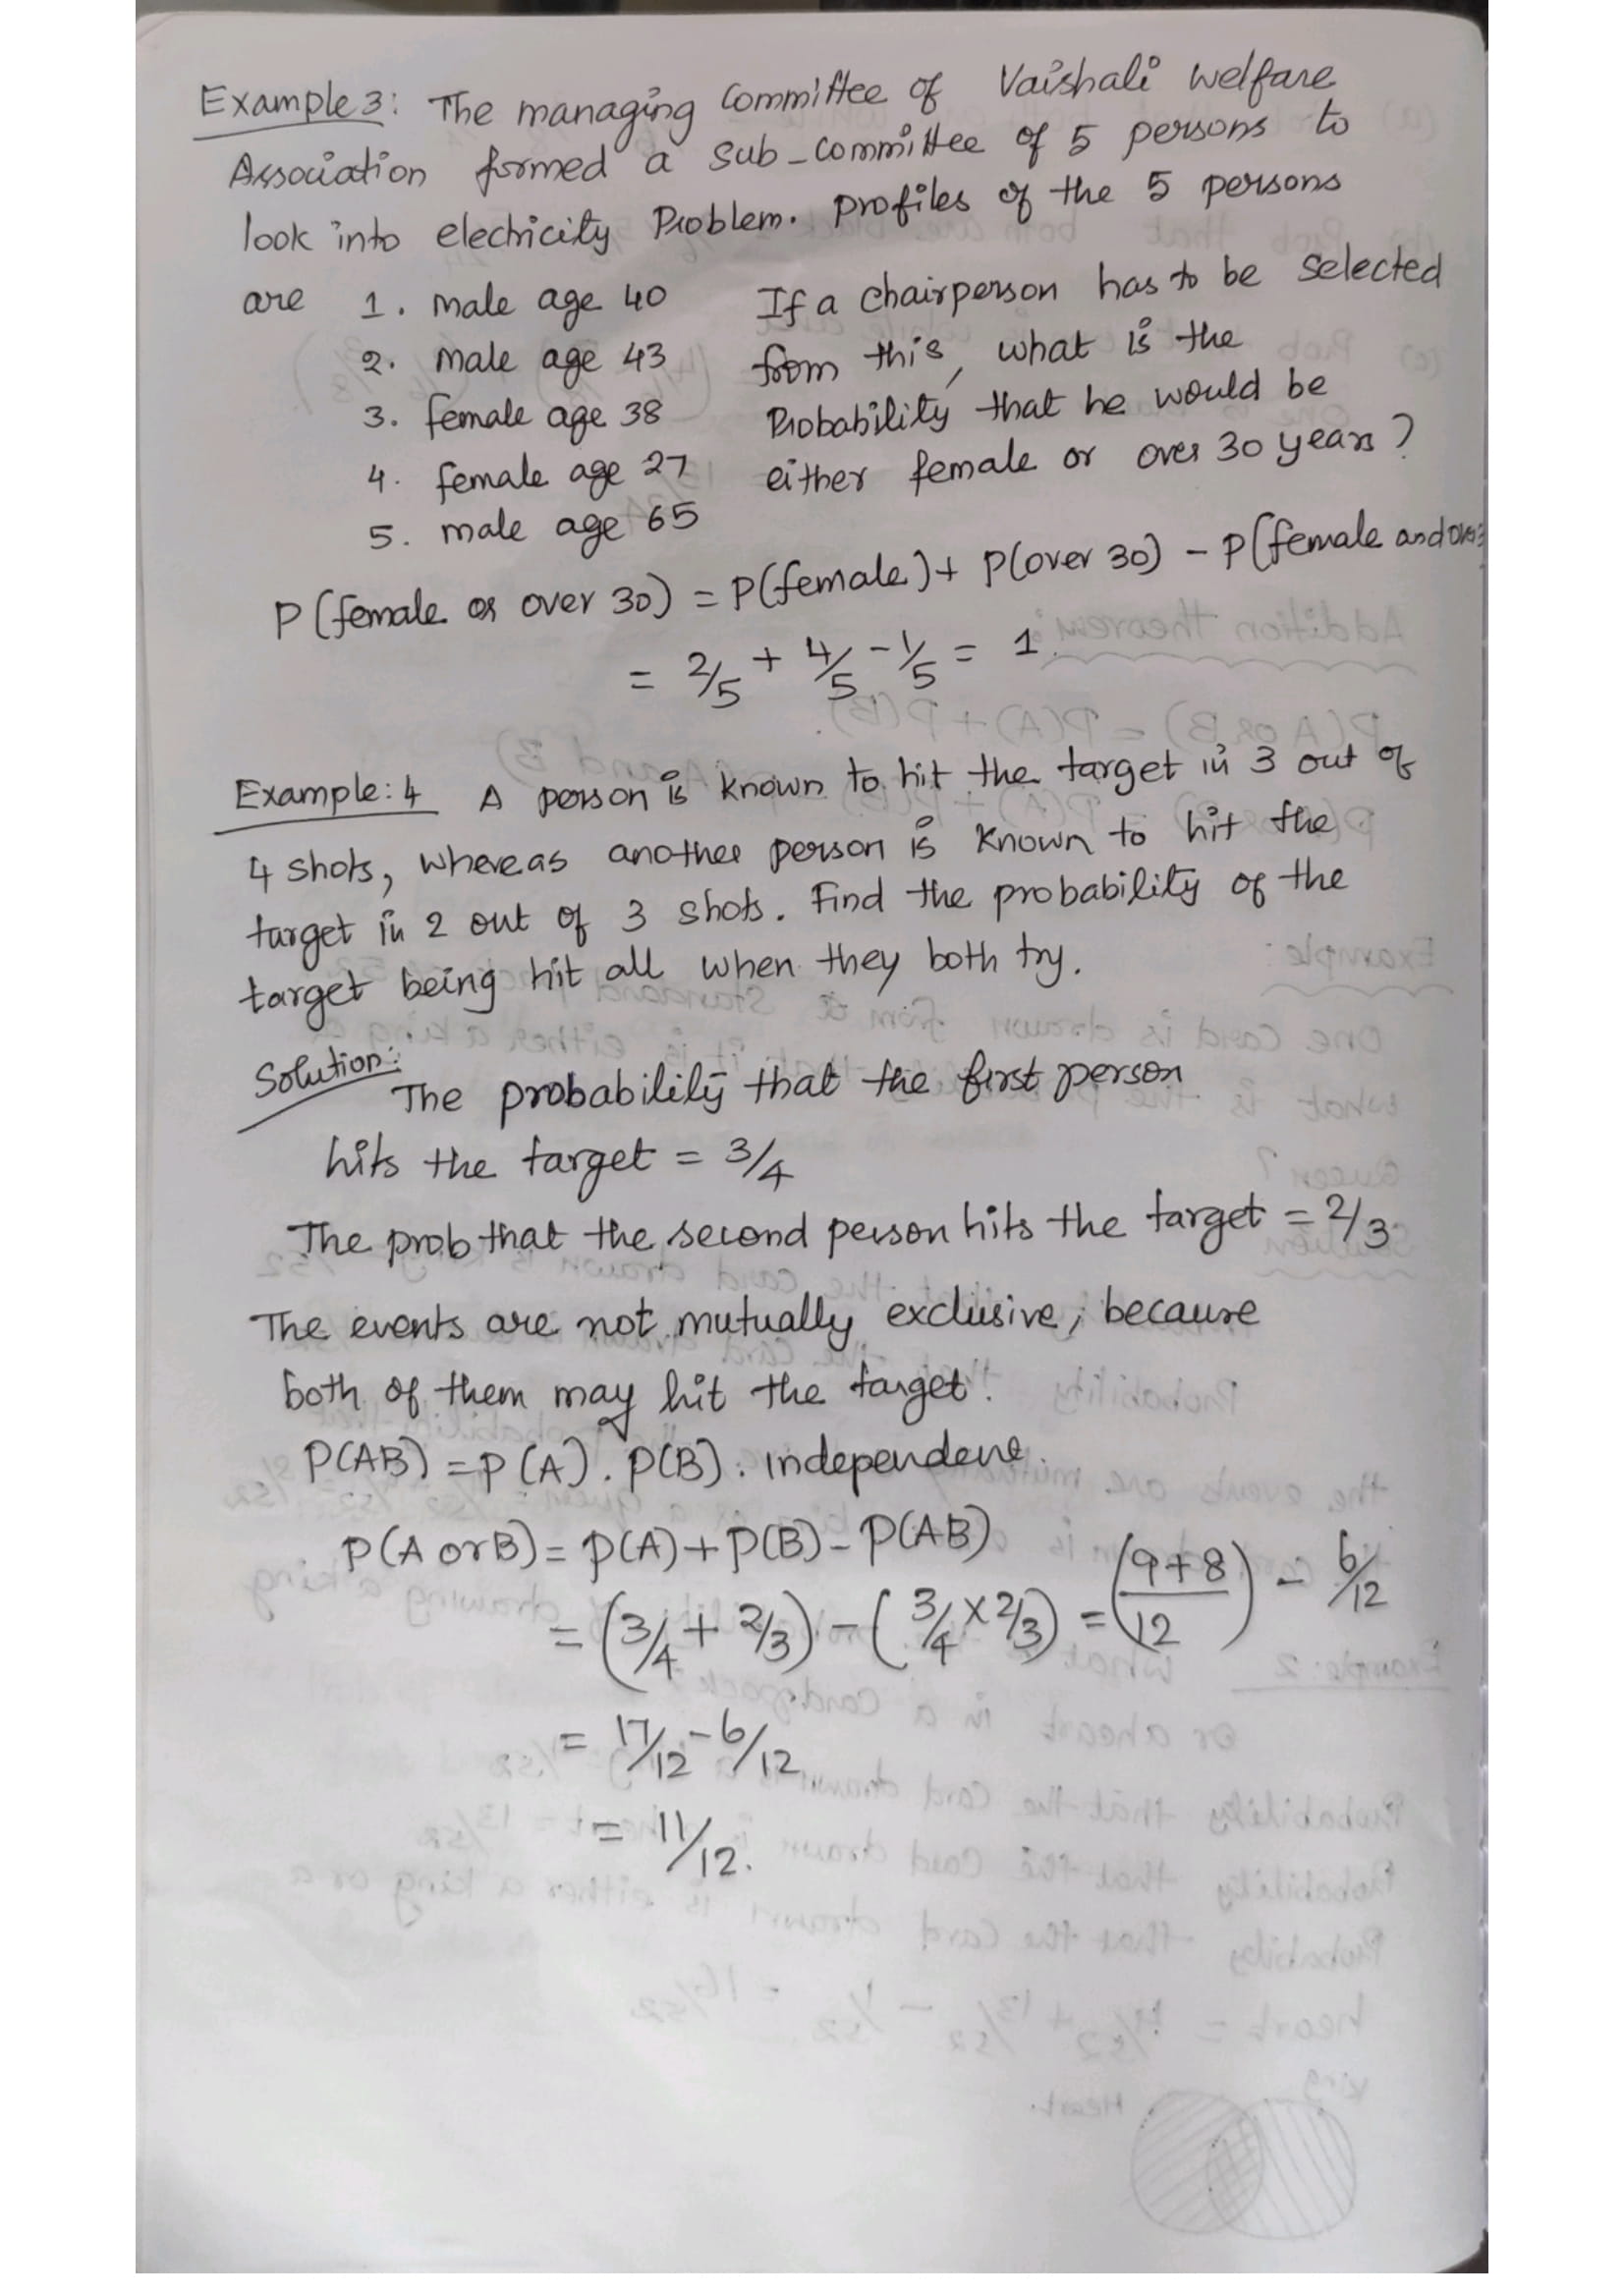 Example 3: The managing Committee of Vaishali Welfare
Association formed a Sub-committee of 5 persons to
look into electricity Problem. Profiles of the 5 persons
are 1. male age 40
2. male age 43
3. female age 38
4. female age 27
5. male age 65
If a chairperson has to be selected
from this, what is the
Probability that he would be
either female or over 30 years?
P(female or over 30) = P(female) + P(over 30) - P(female and over
= 2/5 + 4/5 - 1/5 = 1.
Example: 4 A person is known to hit the target in 3 out of
4 shots, whereas another person is known to hit the
target in 2 out of 3 shots. Find the probability of the
target being hit all when they both try.
Solution:
The probability that the first person
hits the target = 3/4
The prob that the second person hits the target = 2/3.
The events are not mutually exclusive, because
both of them may hit the target.
P(AB) = P(A). P(B). independene.
P(A or B) = P(A) + P(B) - P(AB)
= (3/4 + 2/3) - (3/4 × 2/3) = (9+8/12) - 6/12
= 17/12 - 6/12
= 11/12.